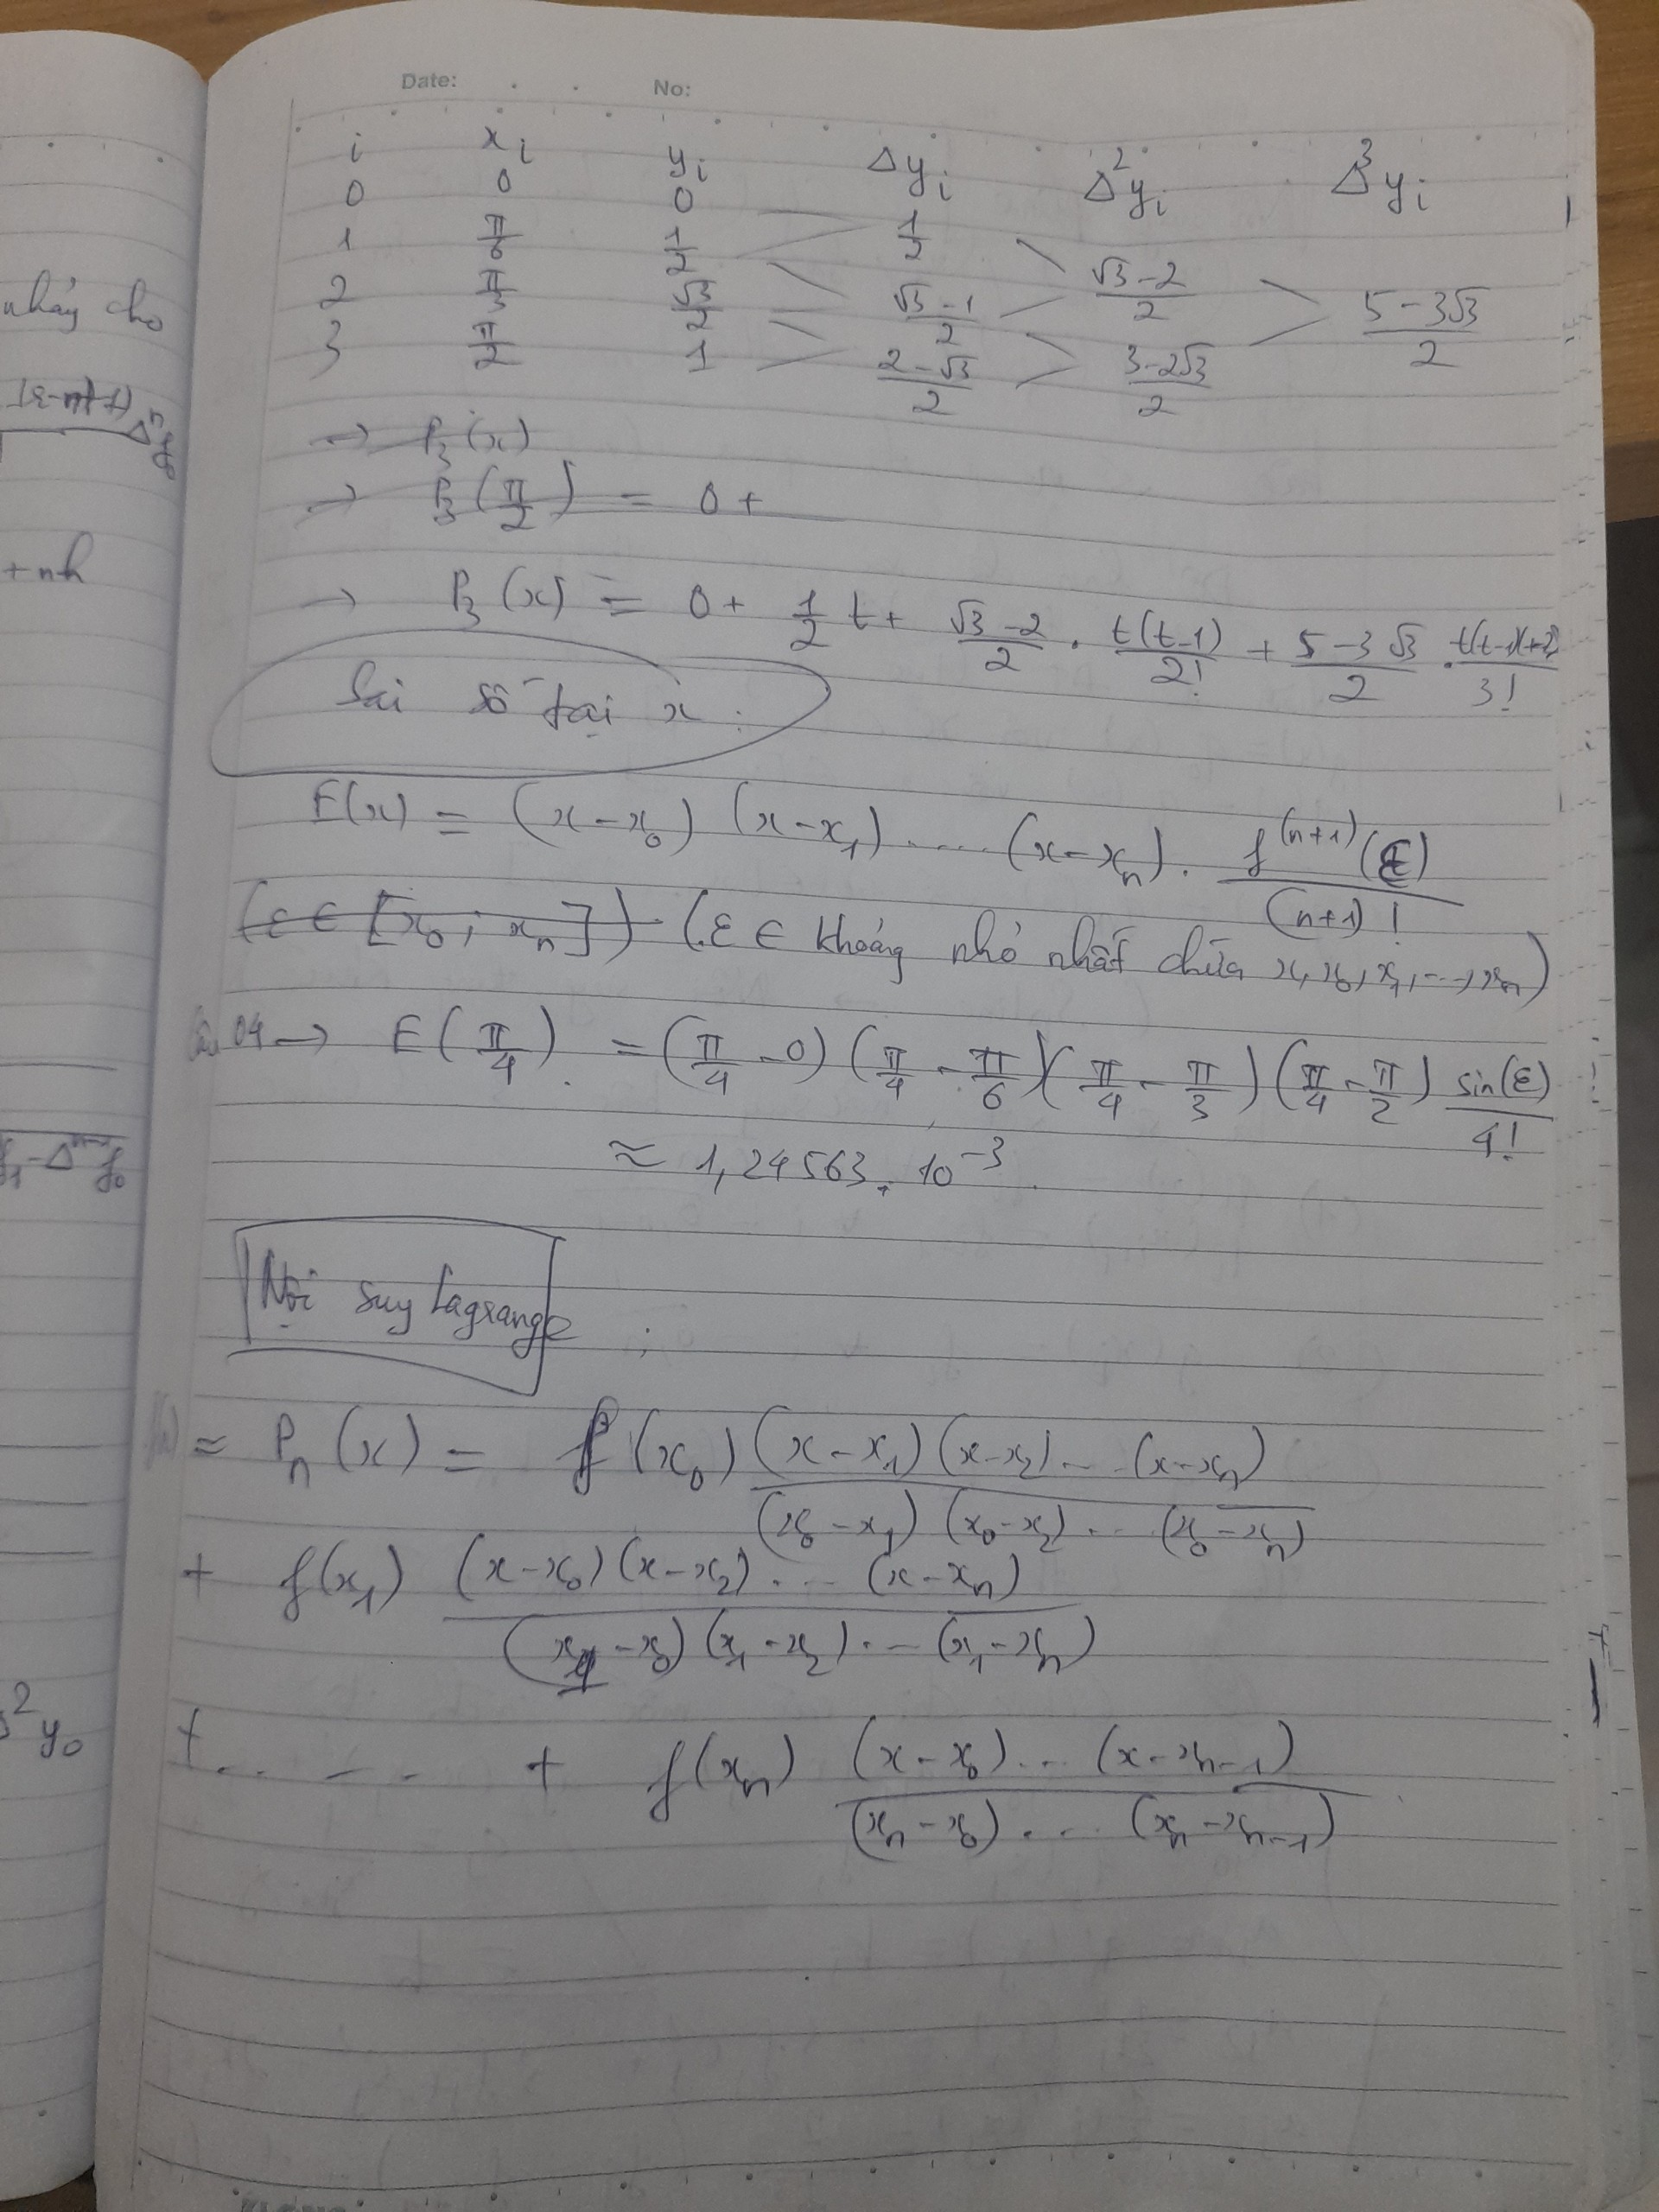 Date: No:
i xᵢ yᵢ Δyᵢ Δ²yᵢ Δ³yᵢ
0 0 0
1 π/6 1/2 1/2
2 π/3 √3/2 (√3-1)/2 (√3-2)/2 (5-3√3)/2
3 π/2 1 (2-√3)/2 (3-2√3)/2
→ P₃(x)
→ P₃(π/2) = 0 +
→ P₃(x) = 0 + 1/2 t + (√3-2)/2 . t(t-1)/2! + (5-3√3)/2 . t(t-1)(t-2)/3!
Sai số tại x :
E(x) = (x-x₀) (x-x₁) ..... (x-xₙ) . f⁽ⁿ⁺¹⁾(ε)/(n+1)!
(ε ∈ [x₀ ; xₙ]) (ε ∈ khoảng nhỏ nhất chứa x, x₀, x₁, ..., xₙ)
Câu 04 → E(π/4) = (π/4 - 0) (π/4 - π/6)(π/4 - π/3) (π/4 - π/2) sin(ε)/4!
≈ 1,24563 . 10⁻³
Nội suy Lagrange :
≈ Pₙ(x) = f(x₀) (x-x₁)(x-x₂)...(x-xₙ)/(x₀-x₁)(x₀-x₂)...(x₀-xₙ)
+ f(x₁) (x-x₀)(x-x₂)...(x-xₙ)/(x₁-x₀)(x₁-x₂)...(x₁-xₙ)
+ ..... + f(xₙ) (x-x₀)...(x-xₙ₋₁)/(xₙ-x₀)....(xₙ-xₙ₋₁)
nháy cho
+ nh
Δ²y₀